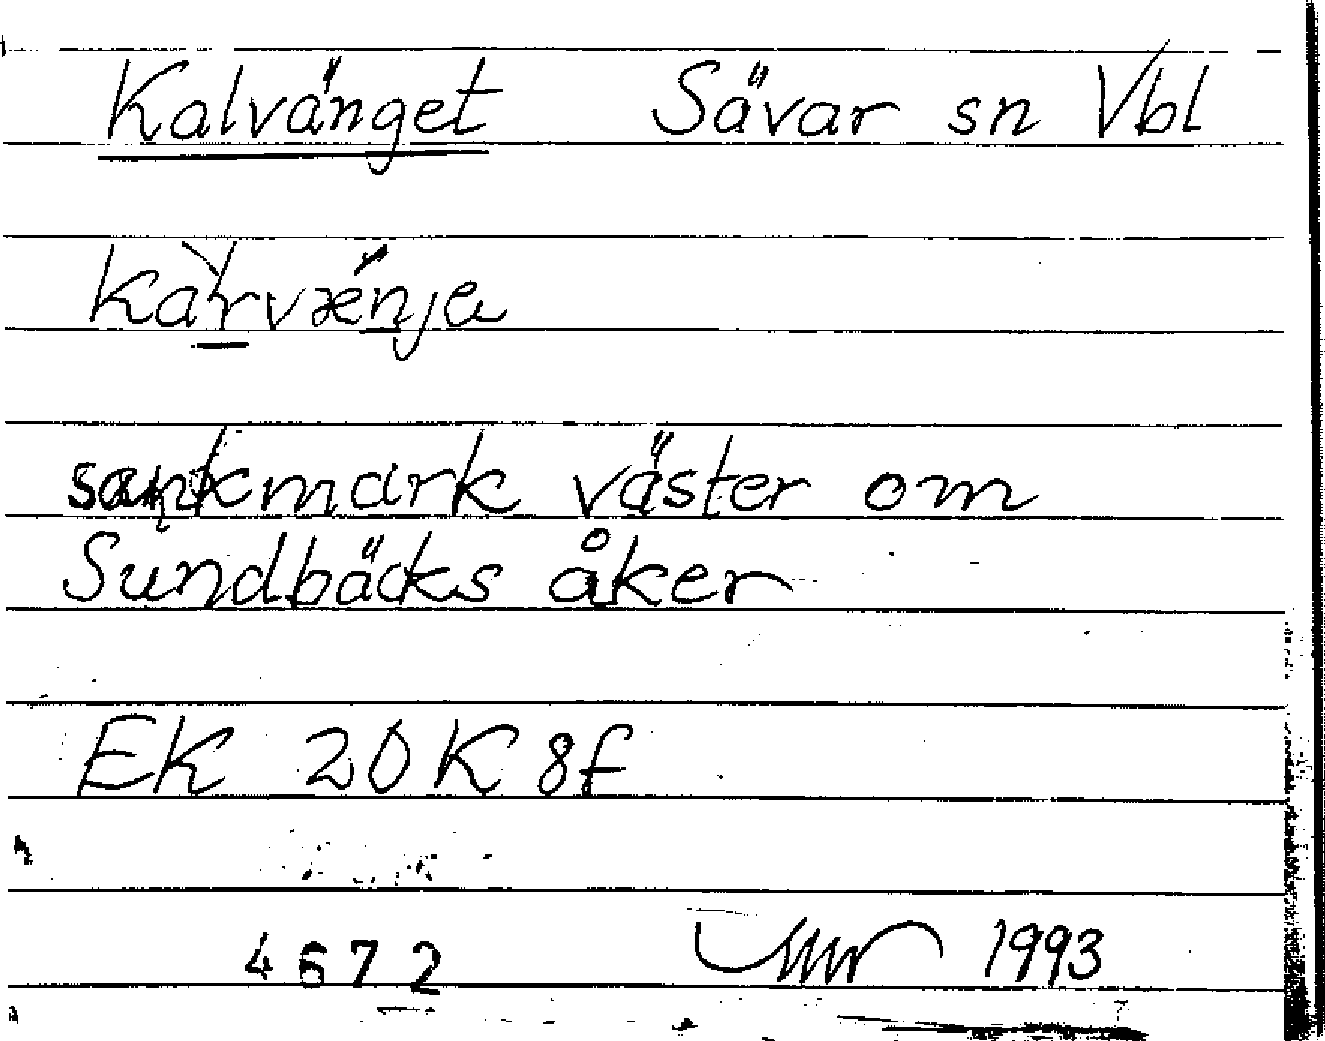 Kalvänget Sävar sn Vbl
sankmark väster om
Sundbäcks åker
EK 20K 8f
4672 1993